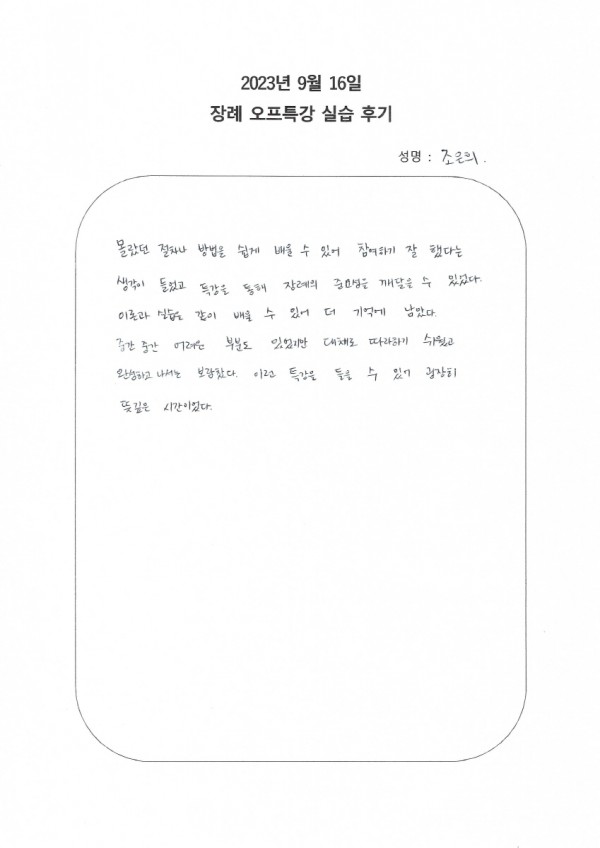 2023년 9월 16일
장례 오프특강 실습 후기
성명 : 조은희.
몰랐던 절차나 방법을 쉽게 배울 수 있어 참여하기 잘 했다는
생각이 들었고 특강을 통해 장례의 중요성을 깨달을 수 있었다.
이론과 실습을 같이 배울 수 있어 더 기억에 남았다.
중간 중간 어려운 부분도 있었지만 대체로 따라하기 쉬웠고
완성하고 나서는 보람찼다. 이런 특강을 들을 수 있어 굉장히
뜻깊은 시간이었다.